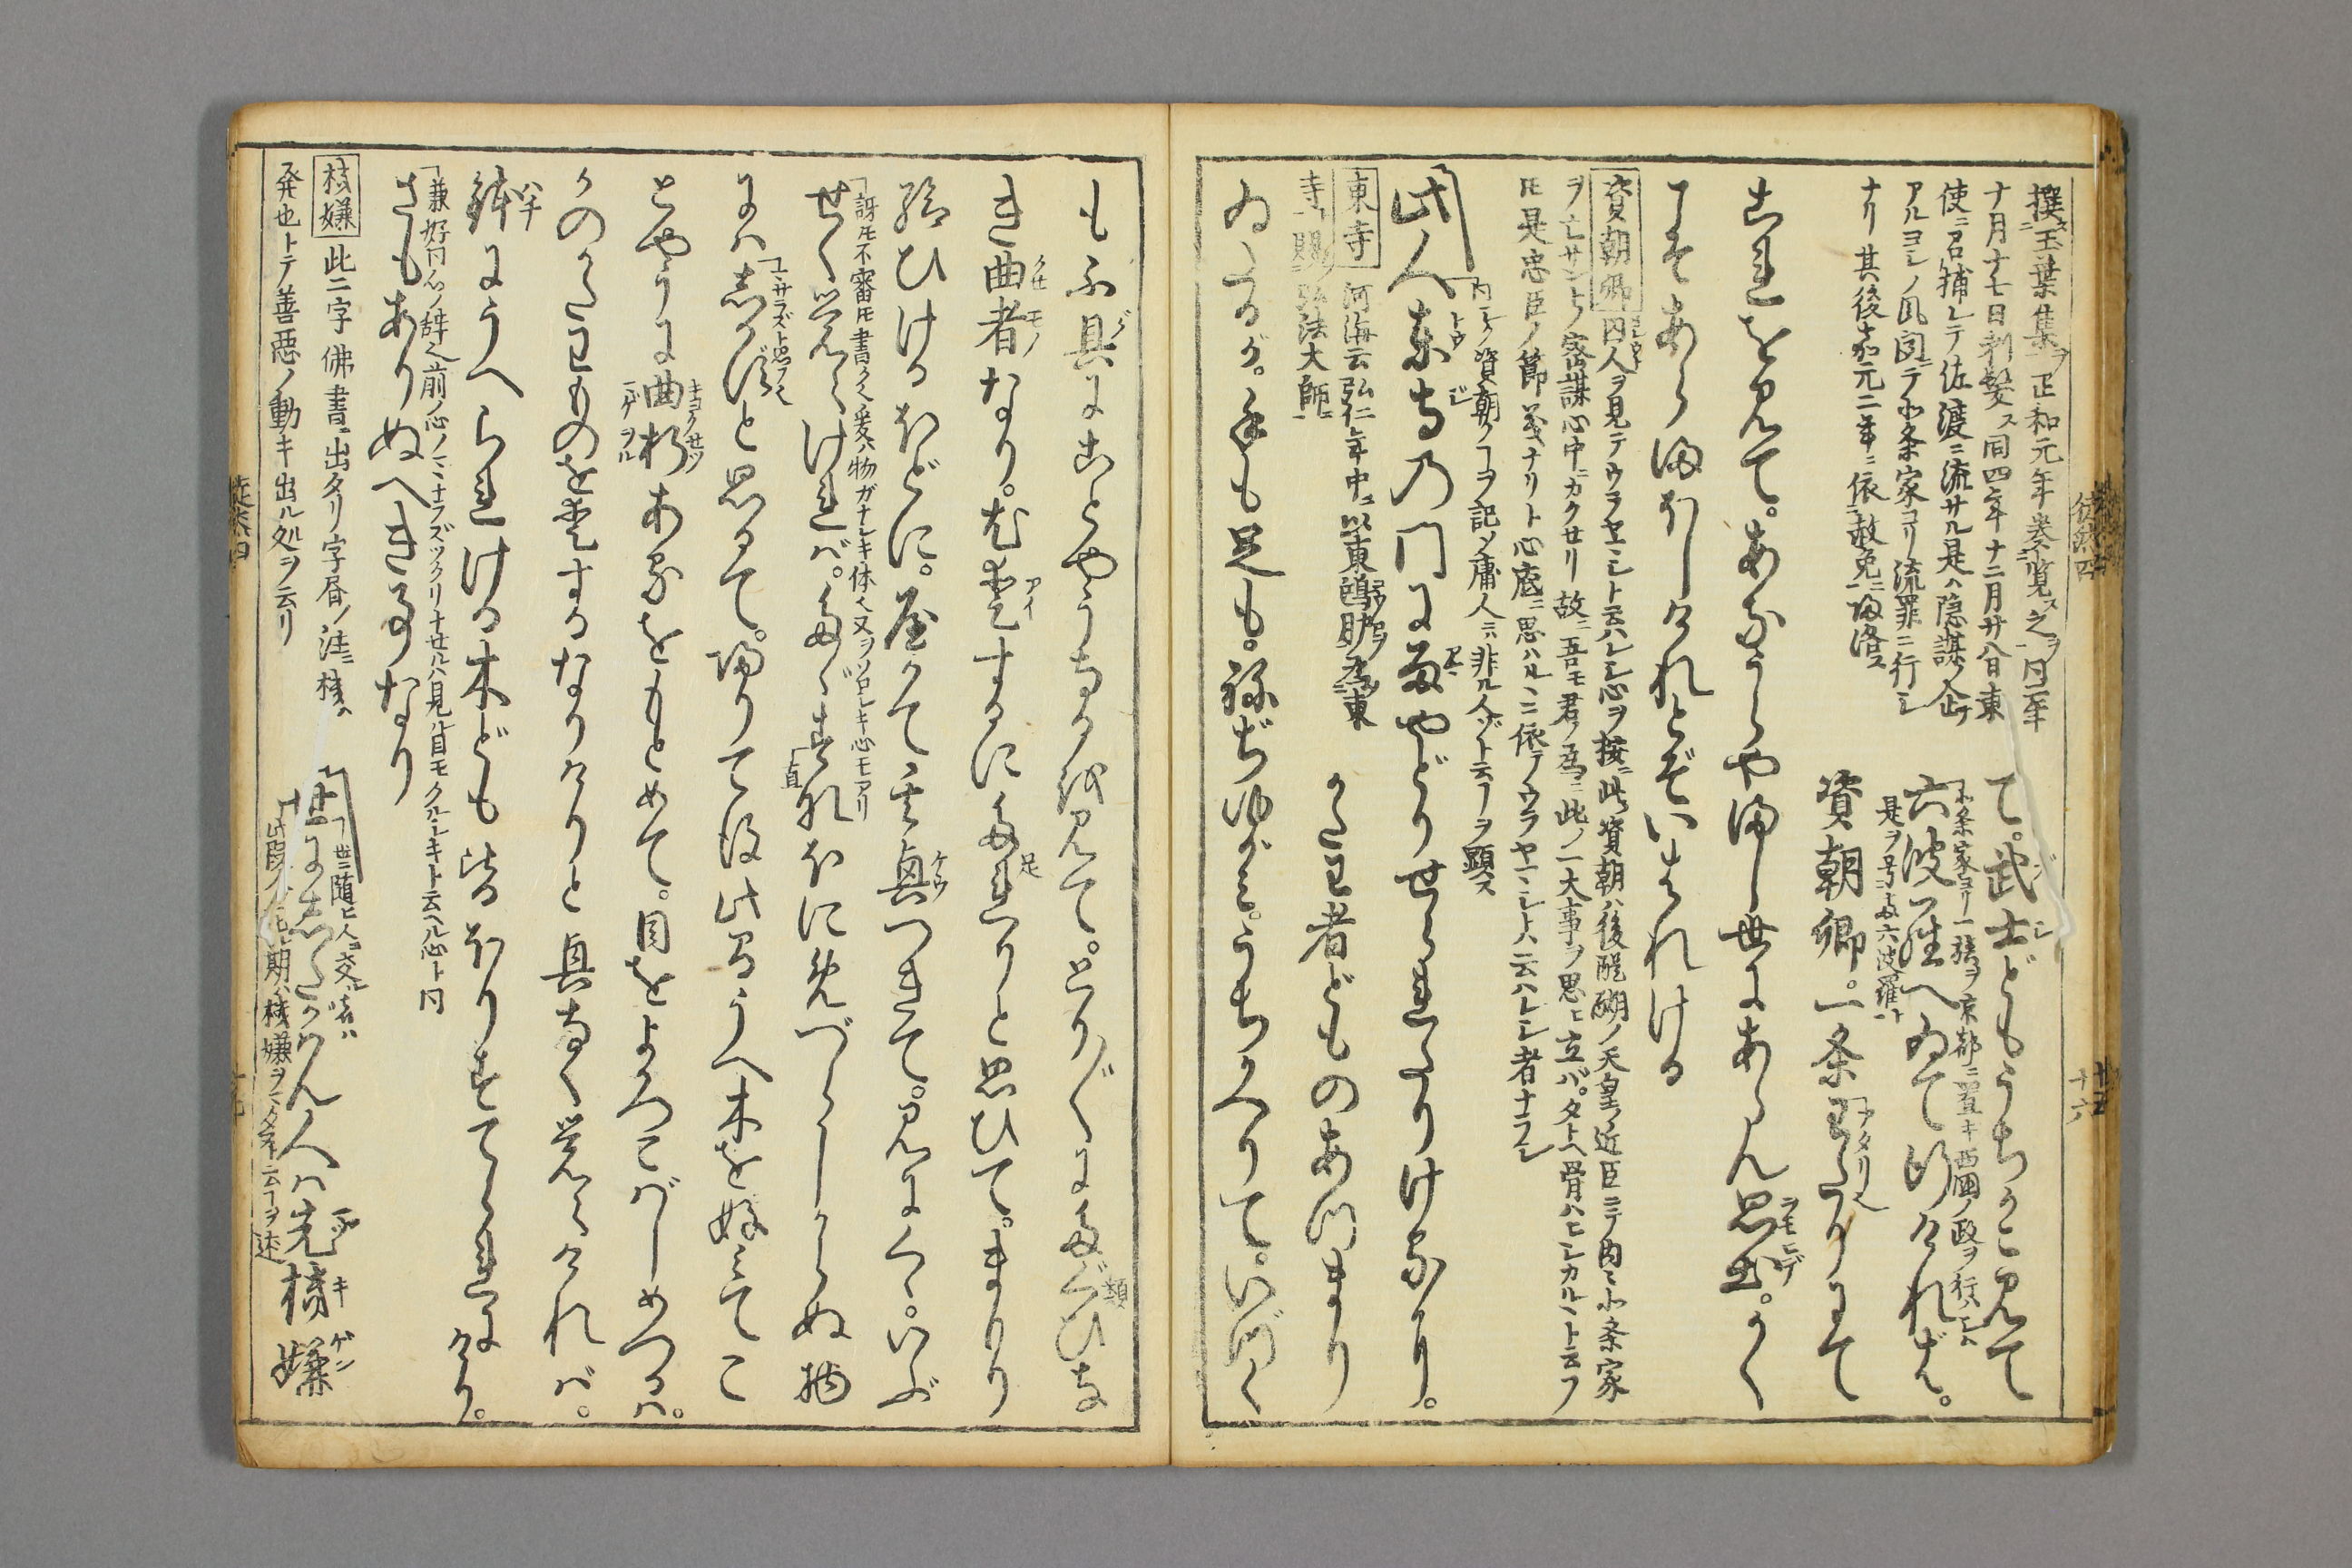 撰玉葉集ヲ正和元年奏覧ス之ヲ同五年
十月十七日剃髪ス同四年十二月廿八日東
使ニ召捕レテ佐渡ニ流サル是ハ隠謀ノ企テ
アルヨシノ風聞ニテ北条家ヨリ流罪ニ行シ
ナリ其後嘉元二年ニ依赦免ニ帰洛ス
て。武士どもうちかこみて
北条家ヨリ一族ヲ京都ニ置キ西国ノ政ヲ行ハシム
六波羅へゐて行ければ。
是ヲ号ス六波羅ト
資朝卿。一条わたりにて
これを見て。あなうらやまし世にあらん思出。かく
こそあらまほしけれとぞいはれける
資朝卿囚人ヲ見テウラヤミシト云ハレシ心ヲ按ニ此資朝ハ後醍醐ノ天皇ノ近臣ニテ内ニ北条家
ヲ亡サントノ密謀心中ニカクセリ故ニ吾モ君ノ為ニ此ノ一大事ヲ思ヒ立バタトヘ骨ハヒシカルヽト云フ
モ是忠臣ノ節義ナリト心底ニ思ハルヽニ依テウラヤマシトハ云ハレシ者ナラン
内ニ資朝ノコヲ記ソ庸人ニハ非ル人ゾト云フヲ顕ス
此人東寺の門に雨やどりせられたりけるに。
東寺 河海云弘仁年中ニ以東鴻臚為東
寺賜弘法大師ニ
かたは者どものあつまり
ゐたるが。手も足も。ねぢゆがみ。うちかへりて。いづく
も不具にことやうなるを見て。とり/″\にたぐひな
き曲者なり。尤愛するに足れりと思ひて。まもり
給ひけるほどに。やがて其興つきて。見にくゝ。いぶ
訝モ不審モ書ク爰ハ物ガナシキ体又ヲソロシキ心モアリ
せく覚えければ。たゞすなほにめづらしからぬ物
にはしかずと思ひて。帰りて後此間うへ木を好みてこ
とやうに曲折あるをもとめて。目をよろこばしめつるは。
かのかたわものを愛するなりけりと興なく覚えければ。
鉢にうへられける木ども皆ほりすてられにけり。
兼好同心ノ辞也前ノ心ノミナラズツクリナセルハ見ル目モクルシキト云ヘル心ト同
さもありぬべき事なり
機嫌 此二字佛書ニ出タリ字書ノ注ニ機ハ
発也トテ善悪ノ動キ出ル処ヲ云リ
世ニ随ヒ人ニ交ル
世にしたがはん人は先機嫌
徒然四
十六